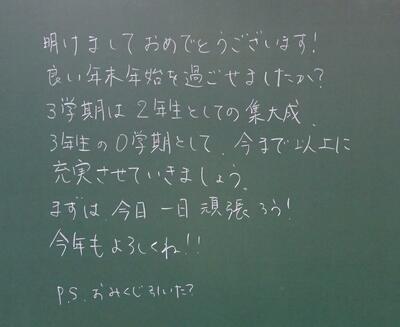 明けましておめでとうございます!
良い年末年始を過ごせましたか?
3学期は2年生としての集大成、
3年生の0学期として、今まで以上に
充実させていきましょう。
まずは、今日一日頑張ろう!
今年もよろしくね!!
P.S. おみくじ引いた?